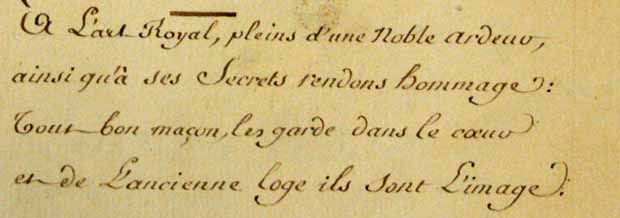 A L'art Royal, pleins d'une Noble ardeur,
ainsi qu'à ses Secrets rendons hommage:
Tout bon maçon, les garde dans le cœur
et de L'ancienne loge ils sont L'image.